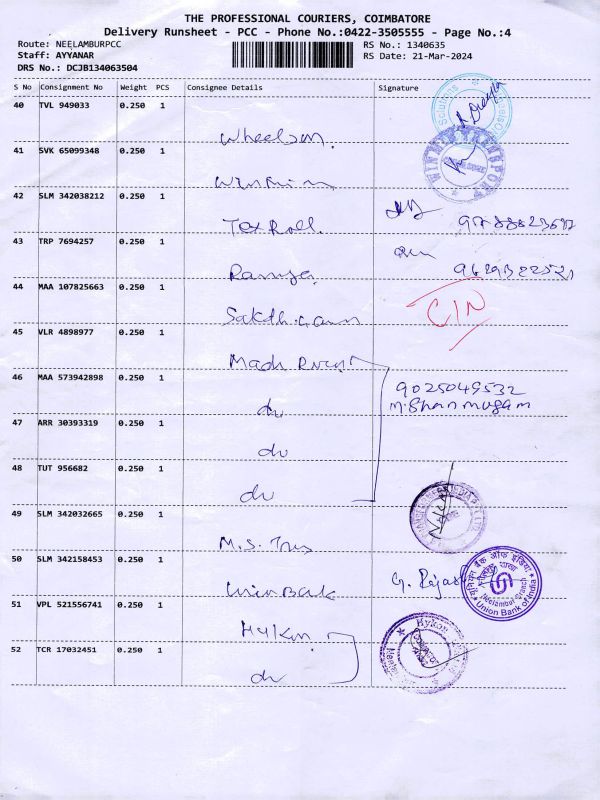 THE PROFESSIONAL COURIERS, COIMBATORE
Delivery Runsheet - PCC - Phone No.:0422-3505555 - Page No.:4
Route: NEELAMBURPCC
RS No.: 1340635
Staff: AYYANAR
RS Date: 21-Mar-2024
DRS No.: DCJB134063504
S No Consignment No Weight PCS Consignee Details Signature
40 TVL 949033 0.250 1
Solutions
41 SVK 65099348 0.250 1
42 SLM 342038212 0.250 1
Tex Roll.
43 TRP 7694257 0.250 1
Ramya
44 MAA 107825663 0.250 1
CIN
45 VLR 4898977 0.250 1
46 MAA 573942898 0.250 1
9025049532
M. Shanmugam
do
47 ARR 30393319 0.250 1
do
48 TUT 956682 0.250 1
do
49 SLM 342032665 0.250 1
M.S.
50 SLM 342158453 0.250 1
यूनियन बैंक ऑफ इंडिया
Neelambur Branch
Union Bank of India
51 VPL 521556741 0.250 1
Hykon
Hykon
52 TCR 17032451 0.250 1
do